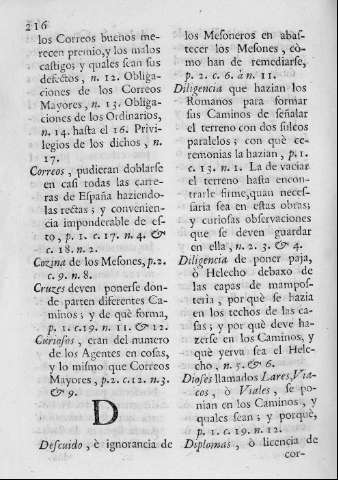 216
los Correos buenos me-
recen premio, y los malos
castigos y quales sean sus
defectos, n. 12. Obliga-
ciones de los Correos
Mayores, n. 13. Obliga-
ciones de los Ordinarios,
n. 14. hasta el 16. Privi-
legios de los dichos, n.
17.
Correos, pudieran doblarse
en casi todas las carre-
ras de España haziendo-
las rectas; y convenien-
cia imponderable de es-
to, p. 1. c. 17. n. 4. &
c. 18. n. 2.
Cozina de los Mesones, p. 2.
c. 9. n. 8.
Cruzes deven ponerse don-
de parten diferentes Ca-
minos; y de què forma,
p. 1. c. 19. n. 11. & 12.
Curiosos, eran del numero
de los Agentes en cosas,
y lo mismo que Correos
Mayores, p. 2. c. 12. n. 3.
& 9.
D
Descuido, è ignorancia de
los Mesoneros en abas-
tecer los Mesones, cò-
mo han de remediarse,
p. 2. c. 6. à n. 11.
Diligencia que hazian los
Romanos para formar
sus Caminos de señalar
el terreno con dos sulcos
paralelos; con què ce-
remonias la hazian, p. 1.
c. 13. n. 1. La de vaciar
el terreno hasta encon-
trarle firme, quan neces-
saria sea en estas obras;
y curiosas observaciones
que se deven guardar
en ella, n. 2. 3. & 4.
Diligencia de poner paja,
ò Helecho debaxo de
las capas de mampos-
teria, por què se hazia
en los techos de las ca-
sas; y por què deve ha-
zerse en los Caminos, y
què yerva sea el Hele-
cho, n. 5. & 6.
Dioses llamados Lares, Via-
cos, ò Viales, se po-
nian en los Caminos, y
quales sean; y porquè,
p. 1. c. 19. n. 12.
Diplomas, ò licencia de
cor-